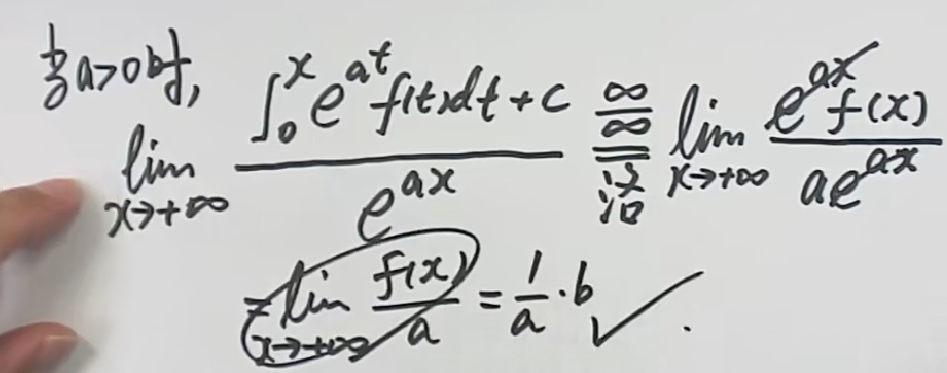 当a>0时,
lim_{x→+∞} \frac{∫_0^x e^{at}f(t)dt+c}{e^{ax}} \overset{\frac{∞}{∞}}{\underset{洛}{=}} lim_{x→+∞} \frac{e^{ax}f(x)}{ae^{ax}}
=lim_{x→+∞} \frac{f(x)}{a} = \frac{1}{a}·b ✓.